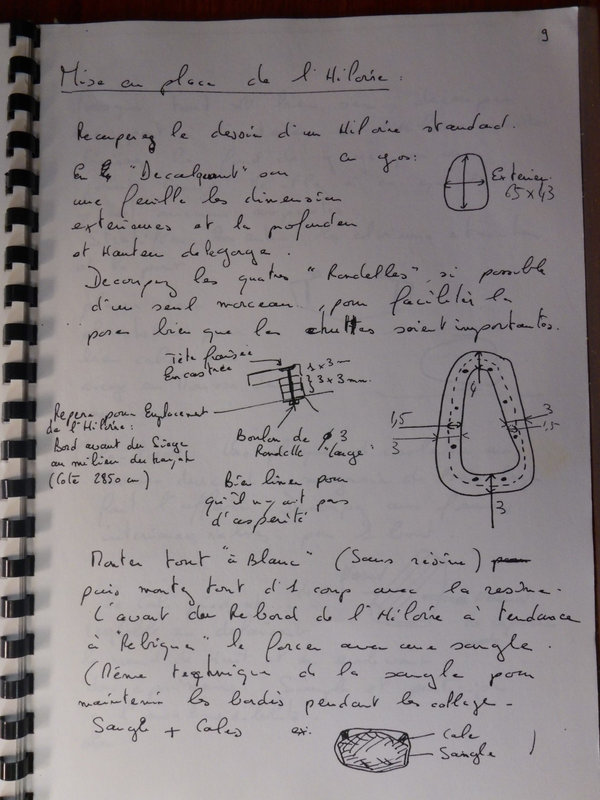 9
Mise en place de l'Hiloire :
Recuperez le dessin d'un Hiloire standard.
en gros :
En "Decalquant" son
une feuille les dimension
exterieures et la profondeur
et Hauteur de la gorge.
Exterieur
65 x 43
Decoupez les quatres "Rondelles" si possible
d'un seul morceau, pour faciliter la
pose bien que les chuttes soient importantes.
Tête fraisée
Encastrée
1 x 3 m
3 x 3 mm
Repere pour Emplacement
de l'Hiloire :
Bord avant du Siège
au milieu du
(Cote 2850 cm)
Boulon de ø 3
Rondelle large
Bien limer pour
qu'il n'y ait pas
d'asperité
4
1,5
3
3
1,5
3
Monter tout "à Blanc" (Sans résine)
puis montez tout d'1 coup avec la resine.
L'avant du Rebord de l'Hiloire à tendance
à "Rebiquer" le forcer avec une sangle.
(Même technique de la sangle pour
maintenir les bordés pendant les collage -
Sangle + Cales ex:
Cale
Sangle )